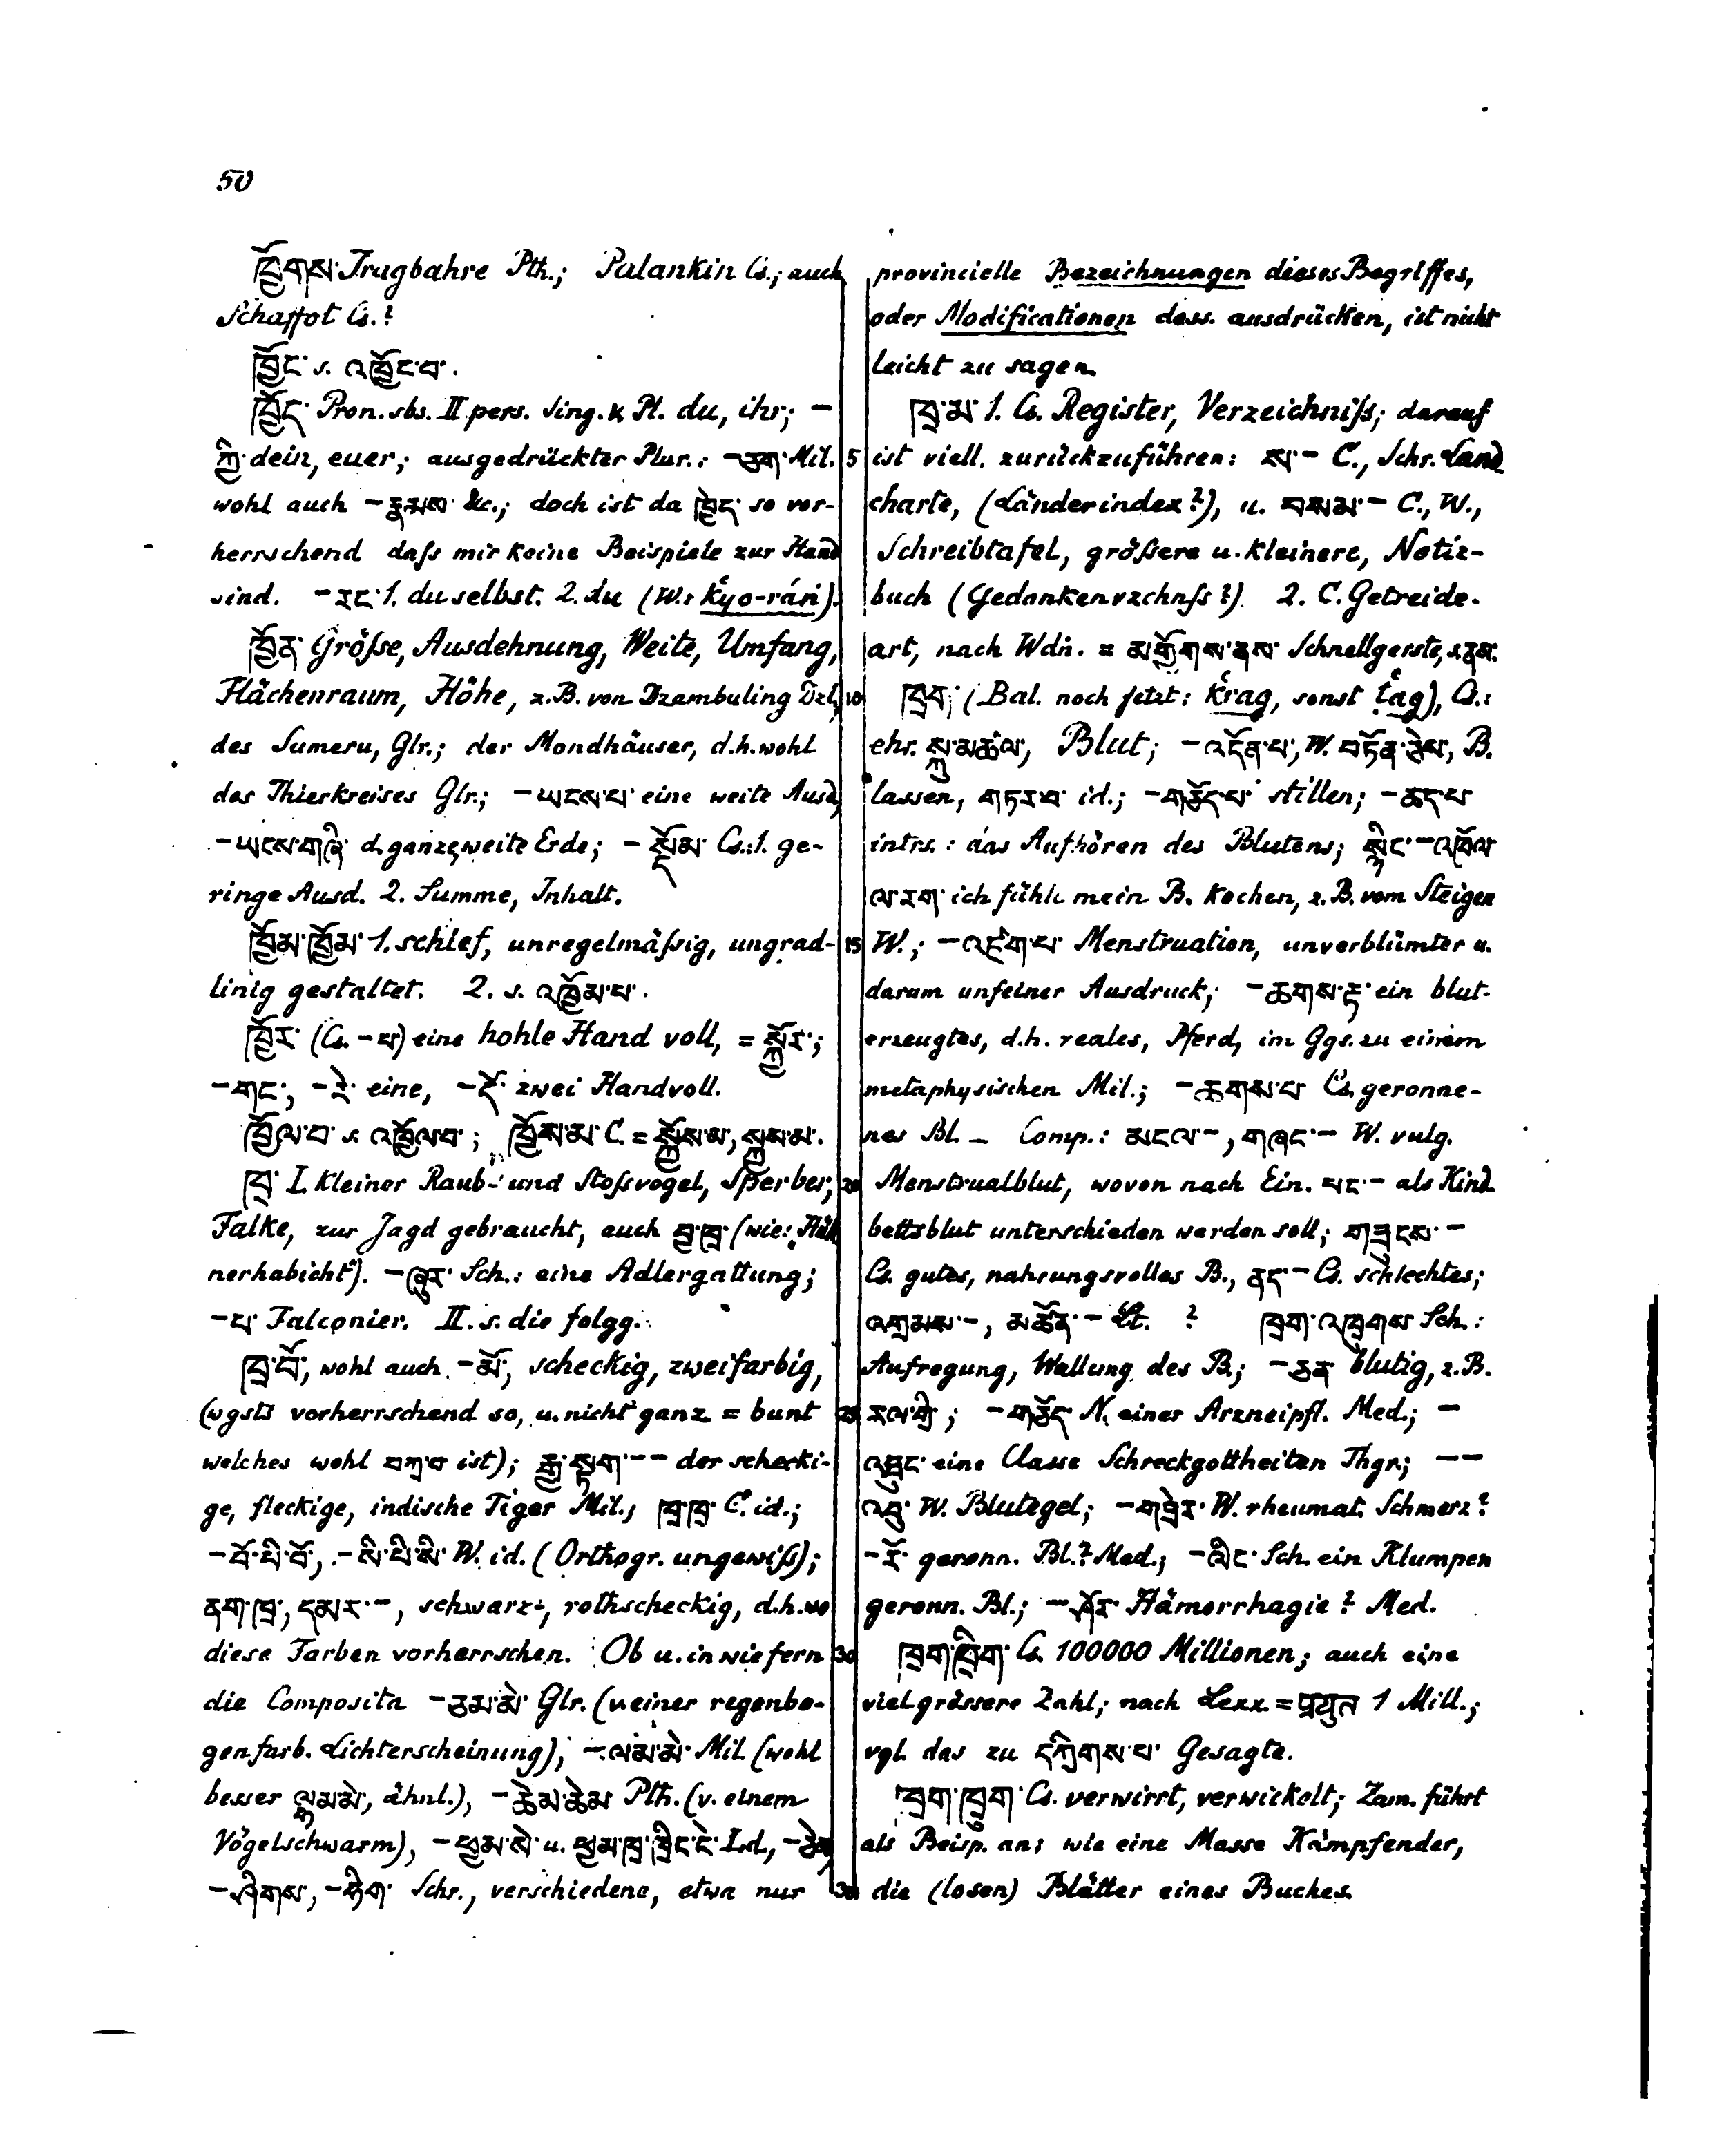 50
ཁྱོགས་ Tragbahre Pth.; Palankin Cs.; auch
Schaffot Cs.?
ཁྱོང་ s. འཁྱོང་བ་.
ཁྱོད་ Pron. sbs. II pers. Sing. & Pl. du, ihr; –
ཀྱི་ dein, euer; ausgedrückter Plur.: –ཅག་ Mil.
wohl auch –རྣམས་ &c.; doch ist da ཁྱེད་ so vor-
herrschend daſs mir keine Beispiele zur Hand
sind. –རང་ 1. du selbst. 2. du (W.: k̔yo-ráṅ).
ཁྱོན་ Gröſse, Ausdehnung, Weite, Umfang,
Flächenraum, Höhe, z.B. von Dzambuling Dzl.,
des Sumeru, Glr.; der Mondhäuser, d.h. wohl
des Thierkreises Glr.; –ཡངས་པ་ eine weite Ausd,
–ཡངས་གཞི་ d. ganze, weite Erde; –སྡོམ་ Cs.: 1. ge-
ringe Ausd. 2. Summe, Inhalt.
ཁྱོམ་ཁྱོམ་ 1. schief, unregelmäſsig, ungrad-
linig gestaltet. 2. s. འཁྱོམ་པ་.
ཁྱོར་ (Cs. –པ་) eine hohle Hand voll, = སྐྱོར་;
–གང་, –རེ་ eine, –དོ་ zwei Handvoll.
ཁྱོལ་བ་ s. འཁྱོལ་བ་; ཁྱོས་མ་ C. = སྐྱོས་མ་, སྐྱས་མ་.
ཁྲ་ I. kleiner Raub- und Stoſsvogel, Sperber,
Falke, zur Jagd gebraucht, auch བྱ་ཁྲ་ (wie: „Hüh
nerhabicht“). –ཞུར་ Sch.: eine Adlergattung;
–པ་ Falconier. II. s. die folgg.
ཁྲ་བོ་, wohl auch –མོ་, scheckig, zweifarbig,
(wgsts vorherrschend so, u. nicht ganz = bunt
welches wohl བཀྲ་བ་ ist); རྒྱ་སྟག་ –– der schecki-
ge, fleckige, indische Tiger Mil.; ཁྲ་ཁྲ་ C. id.;
–བོ་པི་བོ་, –སི་པི་སི་ W. id. (Orthogr. ungewiſs);
ནག་ཁྲ་, དམར་–, schwarz-, rothscheckig, d.h. wo
diese Farben vorherrschen. Ob u. in wiefern
die Composita –ཅམ་མེ་ Glr. (v. einer regenbo-
genfarb. Lichterscheinung), –ལམ་མེ་ Mil. (wohl
besser ལྷམ་མེ་, ähnl.), –ཆེམ་ཆེམ་ Pth. (v. einem
Vögelschwarm), u. Ld.,
–ཤིགས་, –ཧྲིག་ Schr., verschiedene, etwa nur
provincielle Bezeichnungen dieses Begriffes,
oder Modificationen dess. ausdrücken, ist nicht
leicht zu sagen.
ཁྲ་མ་ 1. Cs. Register, Verzeichniſs; darauf
5 ist viell. zurückzuführen: ས་– C., Schr. Land
charte, (Länderindex?), u. བསམ་– C., W.,
Schreibtafel, gröſsere u. kleinere, Notiz-
buch (Gedankenvzchnſs?). 2. C. Getreide-
art, nach Wdn. = མགྱོགས་ནས་ Schnellgerste, s. ནས་.
10 ཁྲག་ (Bal. noch jetzt: k̔rag, sonst ṭ̔ag), Cs.:
ehr. སྐུ་མཚལ་, Blut; –འདོན་པ་, W. བཏོན་ཅེས་, B.
lassen, གཏར་བ་ id.; –གཅོད་པ་ stillen; –ཆད་པ་
intrs.: das Aufhören des Blutens; སྙིང་–འཁོལ་
ལ་རག་ ich fühle mein B. kochen, z.B. vom Steigen
15 W.; –འཛག་པ་ Menstruation, unverblümter u.
darum unfeiner Ausdruck; –ཆགས་རྟ་ ein blut-
erzeugtes, d.h. reales, Pferd, im Ggs. zu einem
metaphysischen Mil.; –ཆགས་པ་ Cs. geronne-
nes Bl. – Comp.: མངལ་–, གཞང་– W. vulg.
20 Menstrualblut, wovon nach Ein. པང་– als Kind
bettsblut unterschieden werden soll; གཟུངས་–
Cs. gutes, nahrungsvolles B., ནད་– Cs. schlechtes;
འགྲམས་–, མཚོན་– Lt. ? ཁྲག་འཁྲུགས་ Sch.:
Aufregung, Wallung des B.; –ཅན་ blutig, z.B.
25 རལ་གྲི་; –གཅོད་ N. einer Arzneipfl. Med.; –
འཐུང་ eine Classe Schreckgottheiten Thgr.; ––
འབུ་ W. Blutegel; –གཟེར་ W. rheumat. Schmerz?
–རོ་ geronn. Bl.? Med.; –ལིང་ Sch. ein Klumpen
geronn. Bl.; –ཤོར་ Hämorrhagie? Med.
30 ཁྲག་ཁྲིག་ Cs. 100000 Millionen; auch eine
viel grössere Zahl; nach Lexx. = प्रयुत 1 Mill.;
vgl. das zu དཀྲིགས་པ་ Gesagte.
ཁྲག་ཁྲུག་ Cs. verwirrt, verwickelt; Zam. führt
als Beisp. an: wie eine Masse Kämpfender,
die (losen) Blätter eines Buches.